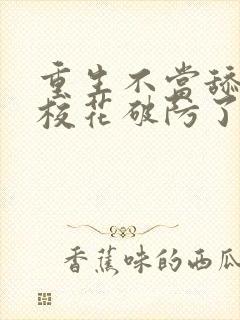 重生不当舔
校花破防了
香蕉味的西瓜